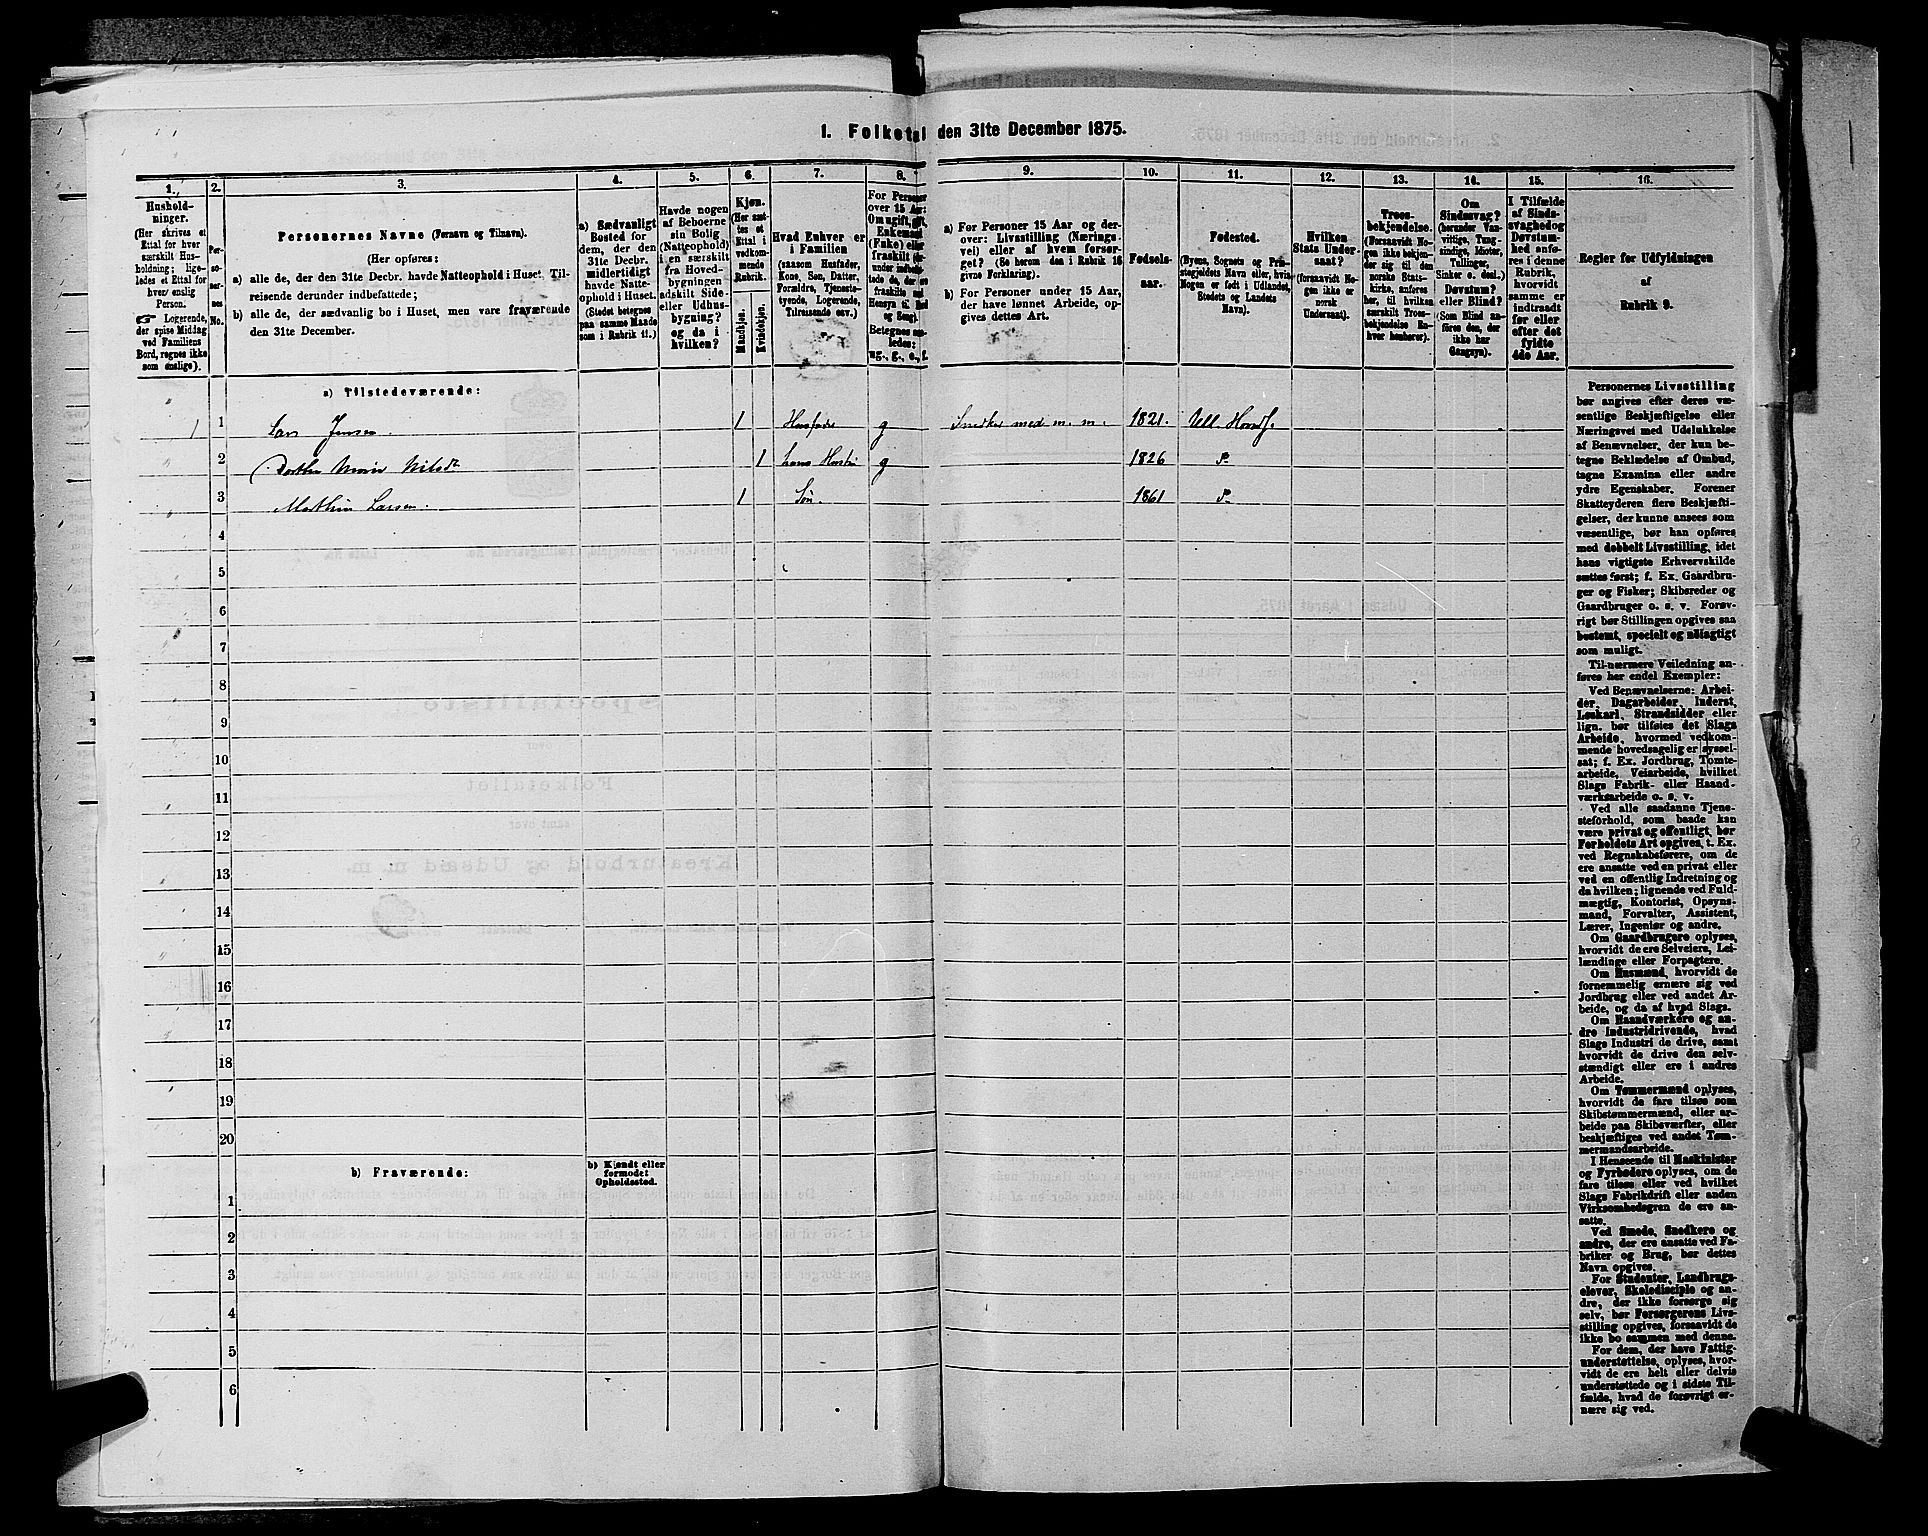 1. Folketal den 31te December 1875.
1. 2. 3. 4. 5. 6. 7. 8. 9. 10. 11. 12. 13. 14. 15. 16.
Hushold-
ninger.
(Her skrives et
Ettal for hver
særskilt Hus-
holdning; lige-
ledes et Ettal for
hver enslig
Person.
☞ Logerende,
der spise Middag
ved Familiens
Bord, regnes ikke
som enslige).
Per-
so-
ner-
nes
No.
Personernes Navne (Fornavn og Tilnavn).
(Her opføres:
a) alle de, der den 31te Decbr. havde Natteophold i Huset, Til-
reisende derunder indbefattede;
b) alle de, der sædvanlig bo i Huset, men vare fraværende
den 31te December.
a) Sædvanligt
Bosted for
dem, der den
31te Decbr.
midlertidigt
havde Natte-
ophold i Huset.
(Stedet betegnes
paa samme Maade
som i Rubrik 11.)
Havde nogen
af Beboerne
sin Bolig
(Natteophold)
i en særskilt
fra Hoved-
bygningen
adskilt Side-
eller Udhus-
bygning?
og da i
hvilken?
Kjøn.
(Her sæt-
tes et
Ettal i
vedkom-
mende
Rubrik.
Mandkjøn.
Kvindekjøn.
Hvad Enhver er
i Familien
(saasom Husfader,
Kone, Søn, Datter,
Forældre, Tjeneste-
tyende, Logerende,
Tilreisende osv.)
For Personer
over 15 Aar:
Om ugift, gift,
Enkemand
(Enke) eller
fraskilt
Betegnes saa-
ledes:
ug., g., e., f.
a) For Personer 15 Aar og der-
over: Livsstilling (Nærings-
vei) eller af hvem forsør-
get? (Se herom den i Rubrik 16
givne Forklaring).
b) For Personer under 15 Aar,
der have lønnet Arbeide, op-
gives dettes Art.
Fødsels-
aar.
Fødested.
(Byens, Sognets og Præ-
stegjeldets Navn eller, hvis
Nogen er født i Udlandet,
Stedets og Landets
Navn).
Hvilken
Stats Under-
saat?
(forsaavidt No-
gen ikke er
norsk
Undersaat).
Troes-
bekjendelse.
(Forsaavidt No-
gen ikke bekjen-
der sig til den
norske Stats-
kirke, anføres
her, til hvilken
særskilt Troes-
bekjendelse En-
hver henhører).
Om
Sindssvag?
(herunder Van-
vittige, Tung-
sindige, Idioter,
Tullinger,
Sinker o. desl.)
Døvstum?
eller Blind?
(Som Blind an-
føres den, der
ikke har
Gangsyn).
I Tilfælde
af Sinds-
svaghed og
Døvstum-
hed anfø-
res i denne
Rubrik,
hvorvidt
samme er
indtraadt
før eller
efter det
fyldte
4de Aar.
Regler for Udfyldningen
af
Rubrik 9.
a) Tilstedeværende:
1 1 Lars Jensen 1 Husfader g Snedker med m. m. 1821. Ull.
2 Dorthe Marie Nilsdt 1 hans Hustru g 1826
3 Mathias Larsen. 1 Søn. 1861
4
5
6
7
8
9
10
11
12
13
14
15
16
17
18
19
20
b) Fraværende:
b) Kjendt eller
formodet
Opholdssted.
1
2
3
4
5
6
Personernes Livsstilling
bør angives efter deres væ-
sentlige Beskjæftigelse eller
Næringsvei med Udelukkelse
af Benævnelser, der kun be-
tegne Beklædelse af Ombud,
tagne Examina eller andre
ydre Egenskaber. Forener
Skatteyderen flere Beskjæfti-
gelser, der kunne ansees som
væsentlige, bør han opføres
med dobbelt Livsstilling, idet
hans vigtigste Erhvervskilde
sættes først; f. Ex. Gaardbru-
ger og Fisker; Skibsreder og
Gaardbruger o. s. v. Forøv-
rigt bør Stillingen opgives saa
bestemt, specielt og nøiagtigt
som muligt.
Til nærmere Veiledning an-
føres her endel Exempler:
Ved Benævnelserne: Arbei-
der, Dagarbeider, Inderst,
Løskarl, Strandsidder eller
lign. bør tilføies det Slags
Arbeide, hvormed vedkom-
mende hovedsagelig er syssel-
sat; f. Ex. Jordbrug, Tomte-
arbeide, Veiarbeide, hvilket
Slags Fabrik- eller Haand-
værksarbeide o. s. v.
Ved alle saadanne Tjene-
steforhold, som baade kan
være privat og offentligt, bør
Forholdets Art opgives, t. Ex.
ved Regnskabsførere, om de
ere ansatte ved en privat eller
ved en offentlig Indretning og
da hvilken; lignende ved Fuld-
mægtig, Kontorist, Opsyns-
mand, Forvalter, Assistent,
Lærer, Ingeniør og andre.
Om Gaardbrugere oplyses,
hvorvidt de ere Selveiere, Lei-
lændinge eller Forpagtere.
Om Husmænd, hvorvidt de
fornemmelig ernære sig ved
Jordbrug eller ved andet Ar-
beide, og da af hvad Slags.
Om Haandværkere og an-
dre Industridrivende, hvad
Slags Industri de drive, samt
hvorvidt de drive den selv-
stændigt eller ere i andres
Arbeide.
Om Tømmermænd oplyses,
hvorvidt de fare tilsøs som
Skibstømmermænd, eller ar-
beide paa Skibsværfter, eller
beskjæftiges ved andet Tøm-
mermandsarbeide.
I Henseende til Maskinister
og Fyrbødere oplyses, om de
fare tilsøs eller ved hvilket
Slags Fabrikdrift eller anden
Virksomhedsgren de ere an-
satte.
Ved Smede, Snedkere og
andre, der ere ansatte ved Fa-
briker og Brug, bør dettes
Navn opgives.
For Studenter, Landbrugs-
elever, Skoledisciple og an-
dre, der ikke forsørge sig
selv, bør Forsørgerens Livs-
stilling opgives, forsaavidt de
ikke bo sammen med denne.
For dem, der have Fattig-
understøttelse, oplyses, hvor-
vidt de ere helt eller delvis
understøttede og i sidste Til-
fælde, hvad de forøvrigt er-
nære sig ved.